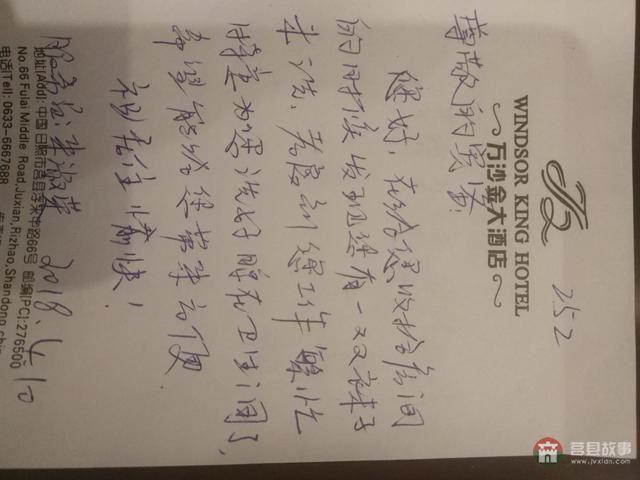 252
WINDSOR KING HOTEL
万沙金大酒店
尊敬的宾客:
您好,在给您收拾房间
的时候发现您有一双袜子
未洗,考虑到您工作繁忙
特意为您洗好晾在卫生间了,
希望能给您带来方便
祝居住愉快!
服务员:
2018.4.10
地址(Add):中国日照市莒县浮来中路66号 邮编(PC):276500
No.66 Fulai Middle Road,Juxian,Rizhao,Shandong,chin
电话(Tel): 0633-6667688
莒县故事
www.jvxian.com